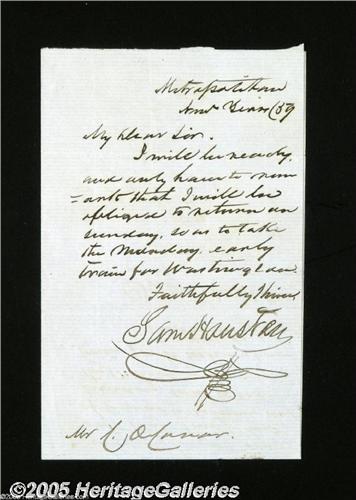 Metropolitan
New Years /59
My Dear Sir.
I will be ready
and only have to rem
-ark that I will be
obliged to return on
sunday, so as to take
the Monday early
train for Washington
Faithfully Thine
Sam Houston
Mr C. O Conor.
©2005 HeritageGalleries